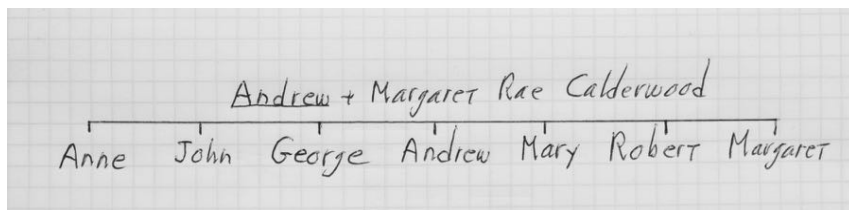 Andrew + Margaret Rae Calderwood
Anne John George Andrew Mary Robert Margaret